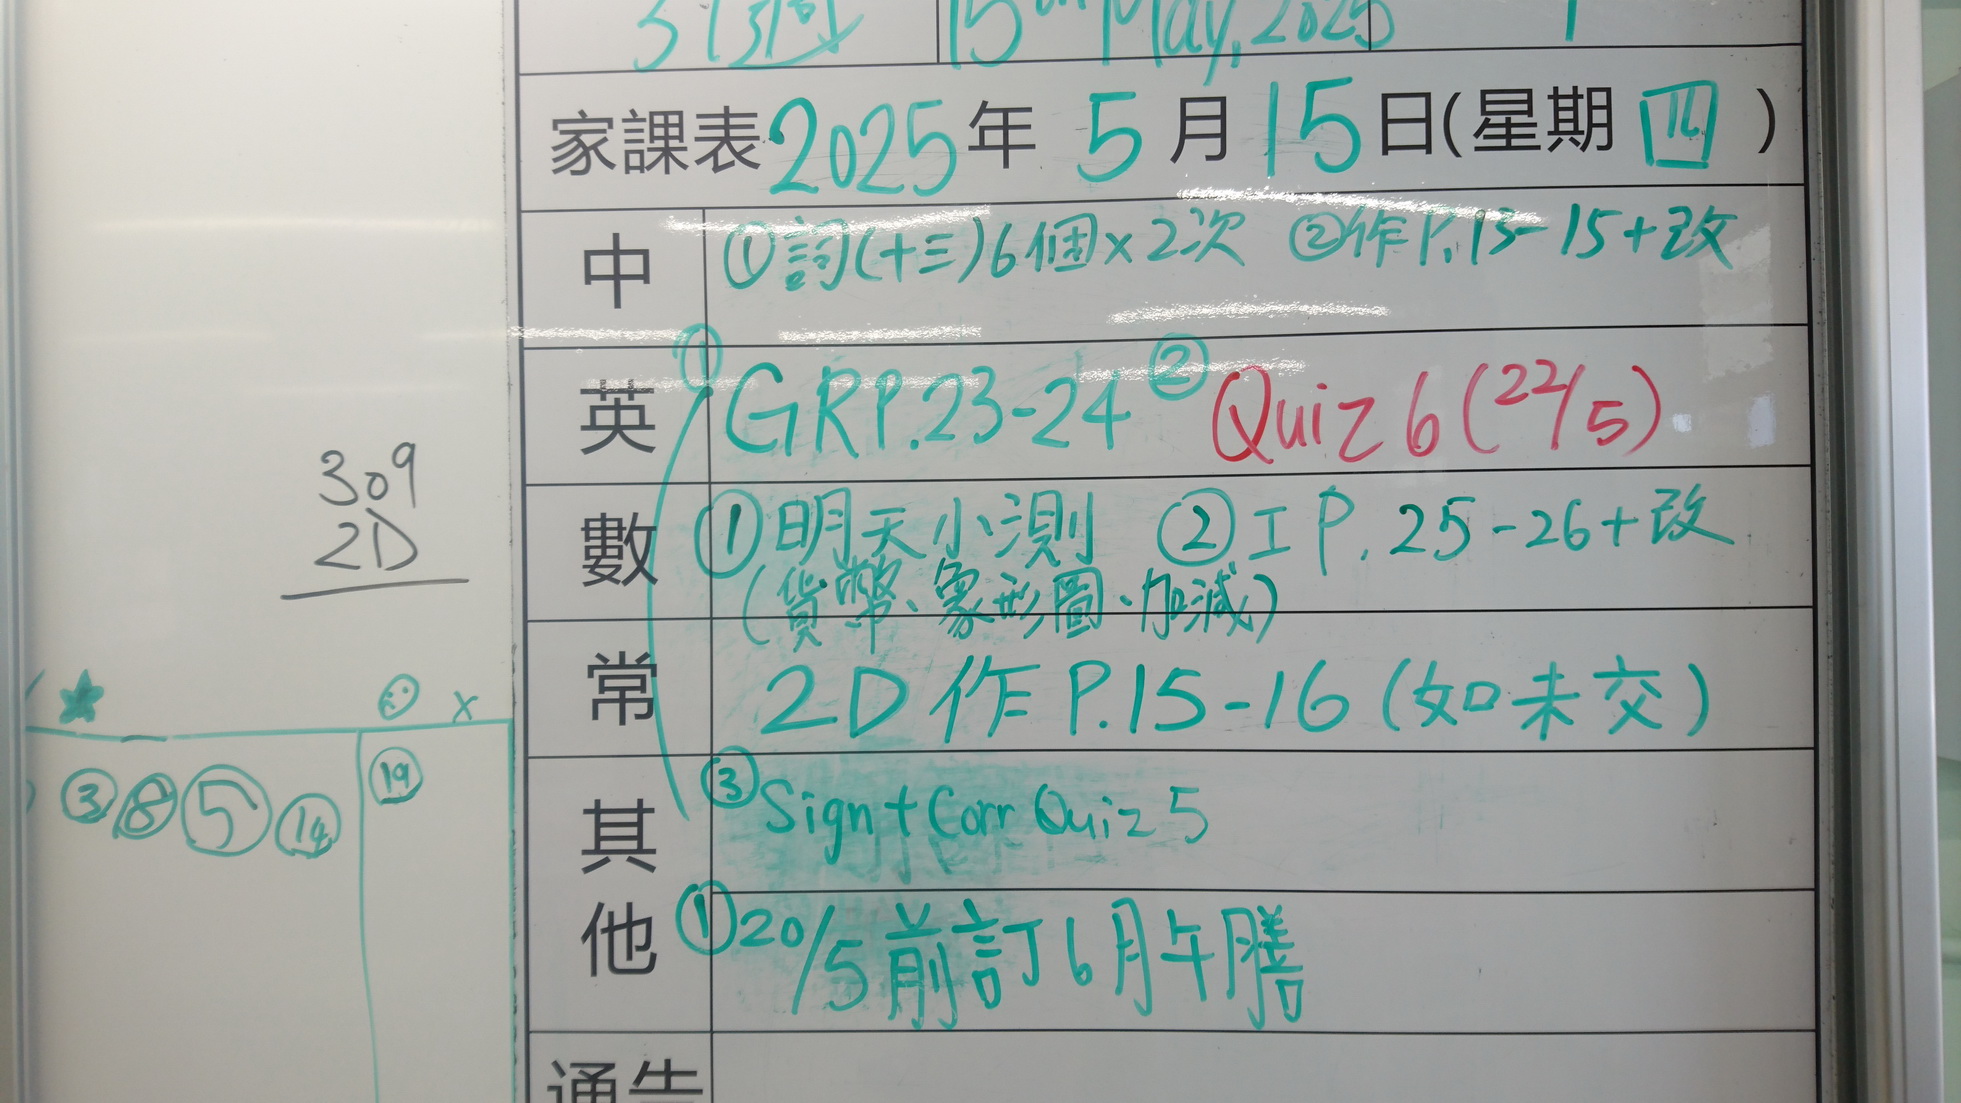 15th May, 2025
家課表 2025年 5月 15日(星期四)
中 ①詞(十三)6個×2次 ②作P.13-15+改
英 ①GRP.23-24 ②Quiz 6 (22/5)
數 ①明天小測 ②工P.25-26+改
(貨幣、象形圖、加減)
常 2D作P.15-16(如未交)
其他 ③Sign+Corr Quiz 5
①20/5前訂6月午膳
通告
309
2D
★ x
③ ⑧ ⑤ ⑭ ⑲